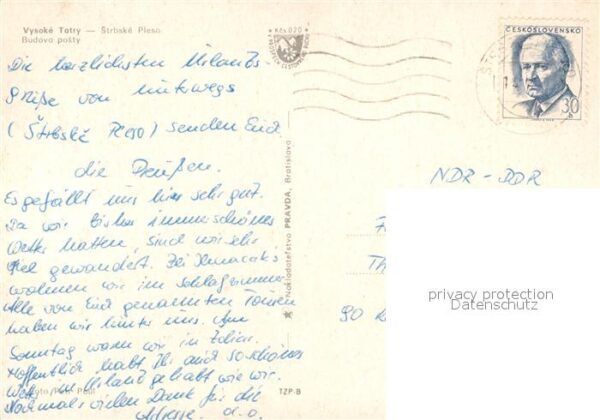 Vysoké Tatry — Štrbské Pleso
Budova pošty
Kčs 0,20
ČESKOSLOVENSKO
30
Die herzlichsten Urlaubs-
grüße von unterwegs
(Štrbské Pleso) senden Euch
die Preußen.
Es gefällt uns hier sehr gut.
Da wir bisher immer schönes
Wetter hatten, sind wir sehr
viel gewandert. Bei
wohnen wir im Schlafzimmer.
Alle von Euch genannten Touren
haben wir hinter uns. Am
Sonntag waren wir in
Hoffentlich habt Ihr auch so schönes
Wetter im Urlaub gehabt wie wir.
Nochmals vielen Dank für die
Adresse d. o.
Foto Petr Paul
TZP-B
★ Nakladateľstvo PRAVDA, Bratislava
NDR - DDR
90
privacy protection
Datenschutz